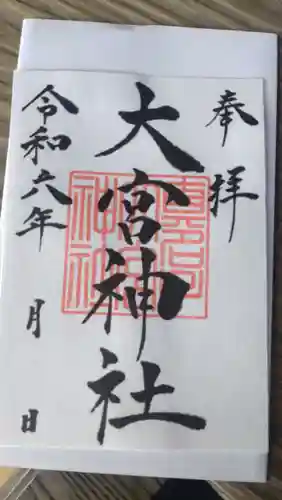 奉拝
大宮神社
令和六年 月 日